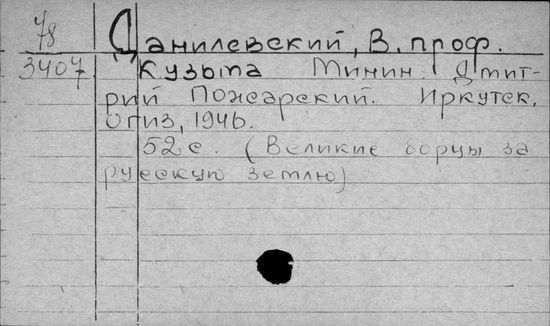 78
3407
Данилевский, В. проф.
Кузьма Минин. Дмит-
рий Пожарский. Иркутск,
Огиз, 1946.
52 с. (Великие борцы за
русскую землю)